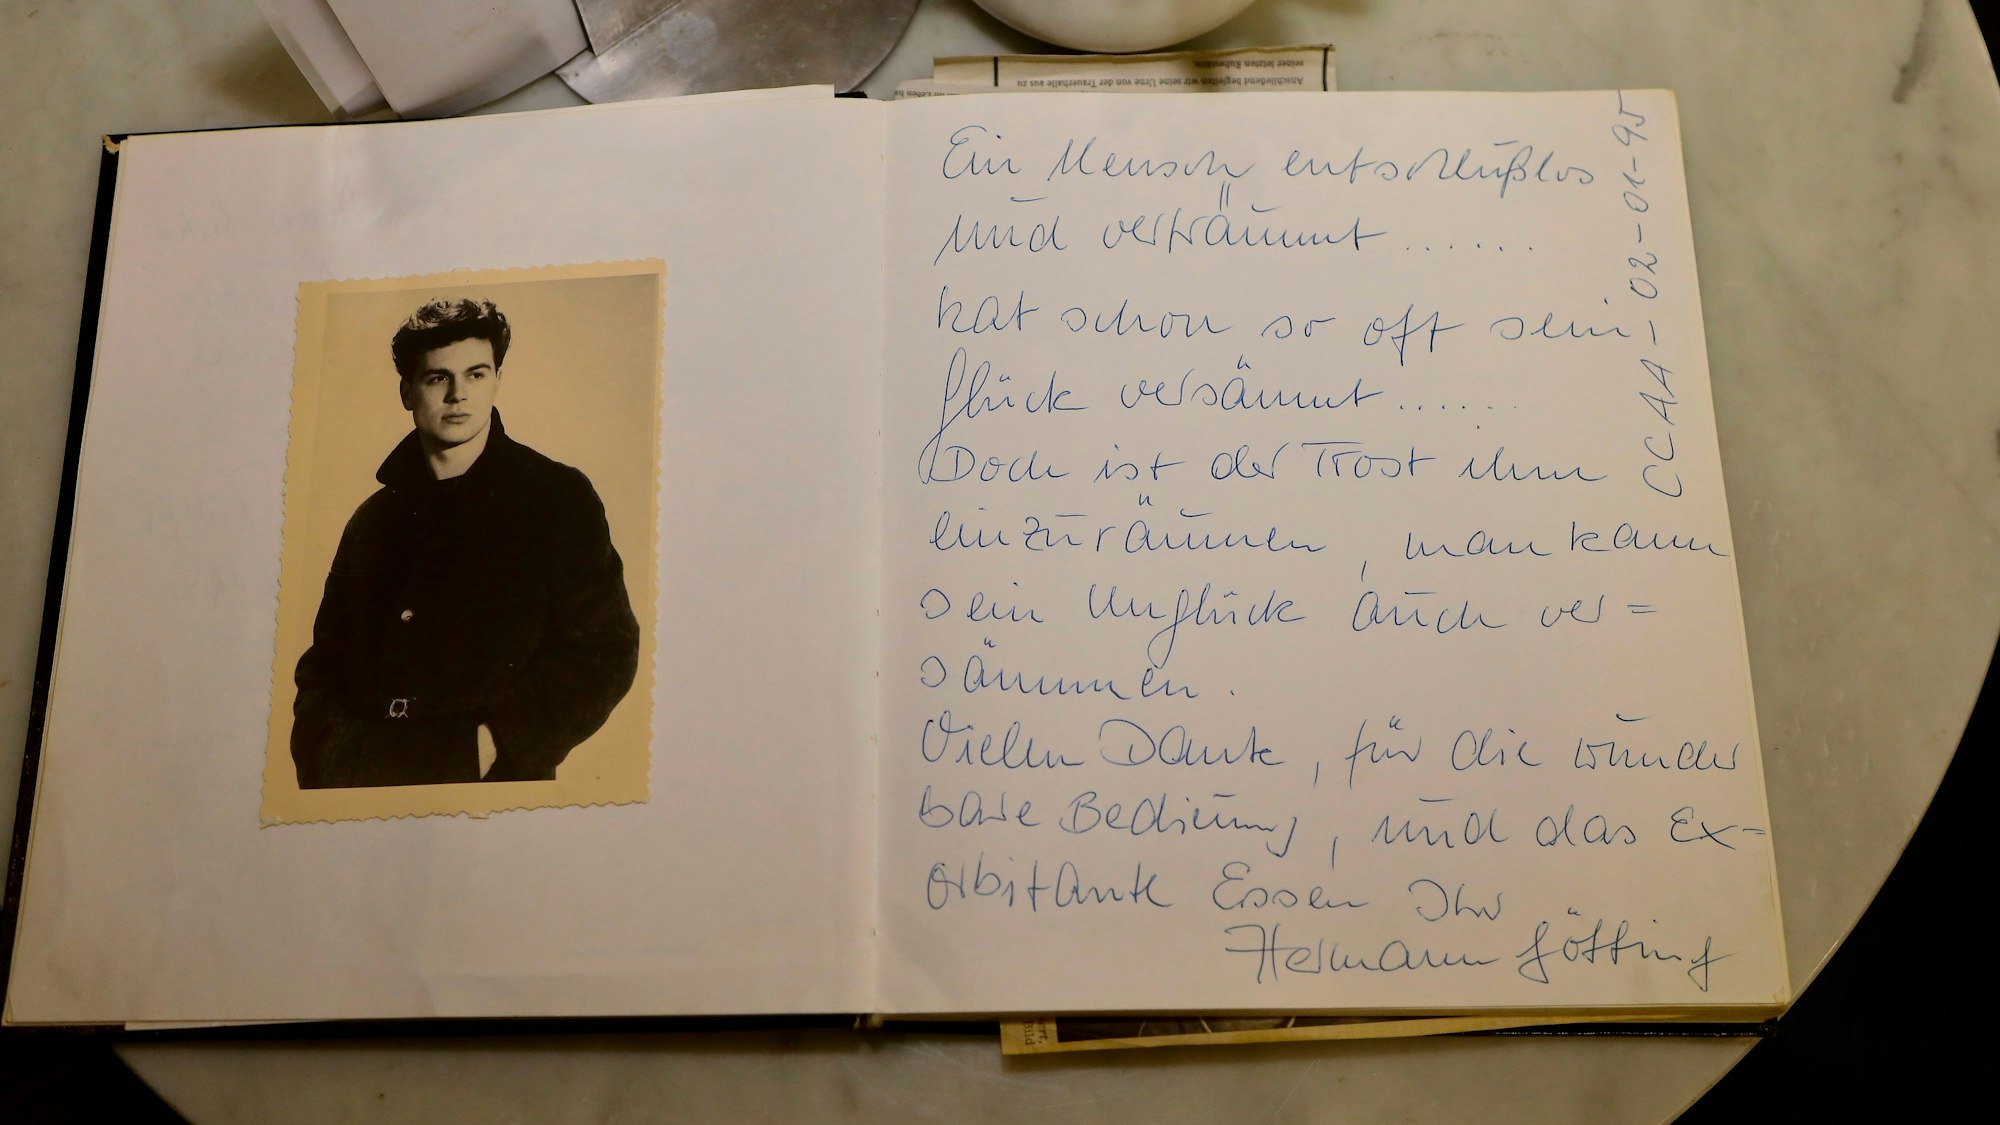 Anschließend begleiten wir seine Urne von der Trauerhalle aus zu
seiner letzten Ruhestätte.
Ein Mensch entschlußlos
und verträumt ......
hat schon so oft sein
Glück versäumt ......
Doch ist der Trost ihm
einzuräumen, man kann
sein Unglück auch ver=
säumen.
Vielen Dank, für die wunder
bare Bedienung, und das Ex=
orbitante Essen Ihr
Hermann Götting
CCAA-02-01-95
Bild